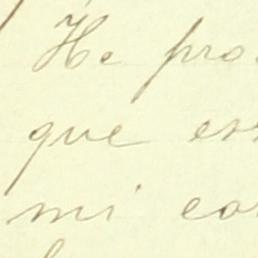 He pro
que es
mi co